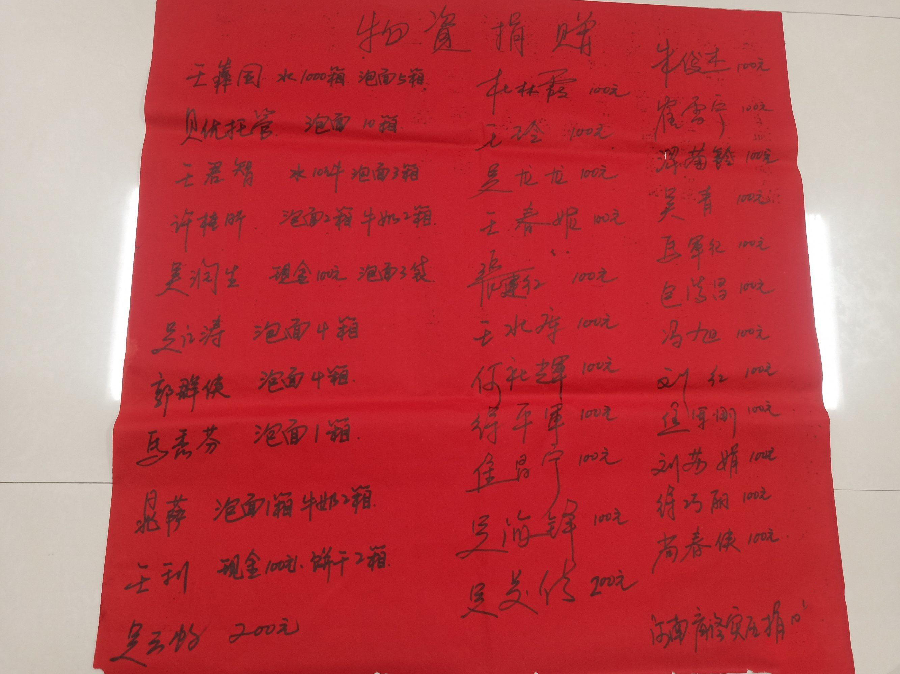 物资捐赠
王 国 水1000箱 泡面5箱
贝优托管 泡面10箱
王君智 水10件 泡面3箱
许桂 泡面2箱 牛奶2箱
吴润生 现金100元 泡面3袋
吴 涛 泡面4箱
郭群侠 泡面4箱
秀芬 泡面1箱
晁萍 泡面1箱 牛奶2箱
王利 现金100元 饼干2箱
吴 200元
杜林霞 100元
王 100元
吴龙龙 100元
王春妮 100元
张 红 100元
王 100元
何 辉 100元
徐平军 100元
昌宁 100元
吴海锋 100元
吴 200元
朱俊杰 100元
霍雷宁 100元
100元
吴青 100元
军红 100元
100元
冯旭 100元
刘红 100元
军刚 100元
刘苏娟 100元
徐巧丽 100元
尚春侠 100元
河南 捐